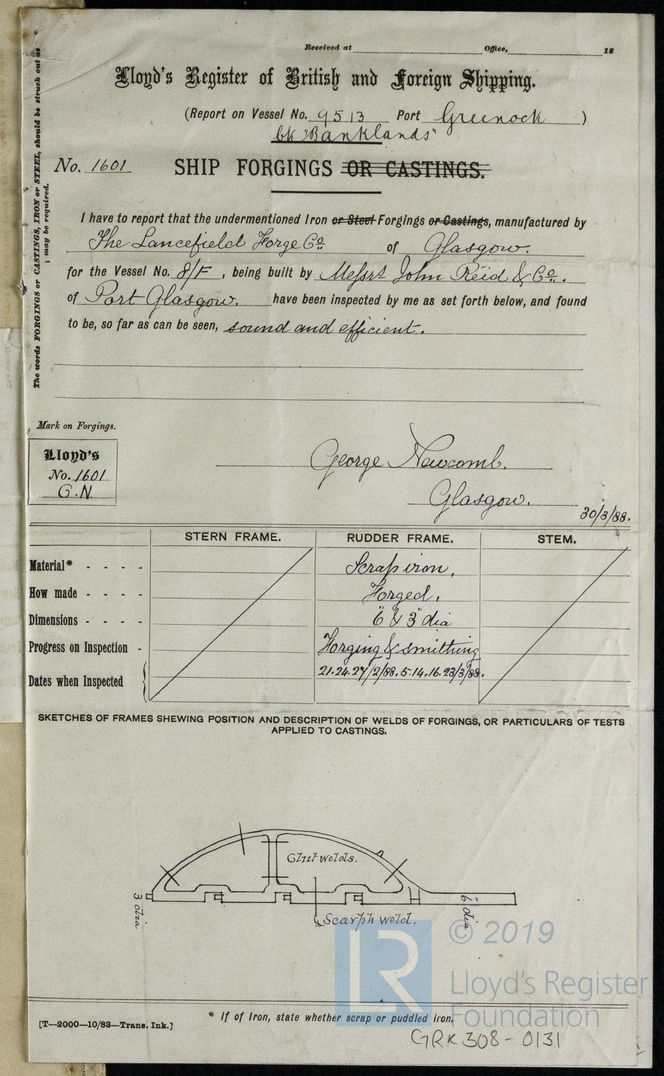 Received at Office, 18
Lloyd's Register of British and Foreign Shipping.
(Report on Vessel No. 9513 Port Greenock )
bk "Banklands"
No. 1601 SHIP FORGINGS OR CASTINGS.
The words FORGINGS or CASTINGS, IRON or STEEL, should be struck out as may be required.
I have to report that the undermentioned Iron or Steel Forgings or Castings, manufactured by
The Lancefield Forge Co. of Glasgow.
for the Vessel No. S/F, being built by Messrs John Reid & Co.
of Port Glasgow. have been inspected by me as set forth below, and found
to be, so far as can be seen, sound and efficient.
Mark on Forgings.
Lloyd's
No. 1601
G.N
George Newcomb.
Glasgow.
30/3/88.
STERN FRAME. RUDDER FRAME. STEM.
Material* - - - - Scrap iron.
How made - - - - Forged.
Dimensions - - - - 6" & 3" dia
Progress on Inspection - Forging & smithing
Dates when Inspected 21.24.27/2/88. 5.14.16.23/3/88.
SKETCHES OF FRAMES SHEWING POSITION AND DESCRIPTION OF WELDS OF FORGINGS, OR PARTICULARS OF TESTS
APPLIED TO CASTINGS.
Glut welds.
3" dia
6" dia
Scarph weld.
© 2019
LR
Lloyd's Register
Foundation
* If of Iron, state whether scrap or puddled iron.
[T—2000—10/83—Trans. Ink.]
GRK308-0131